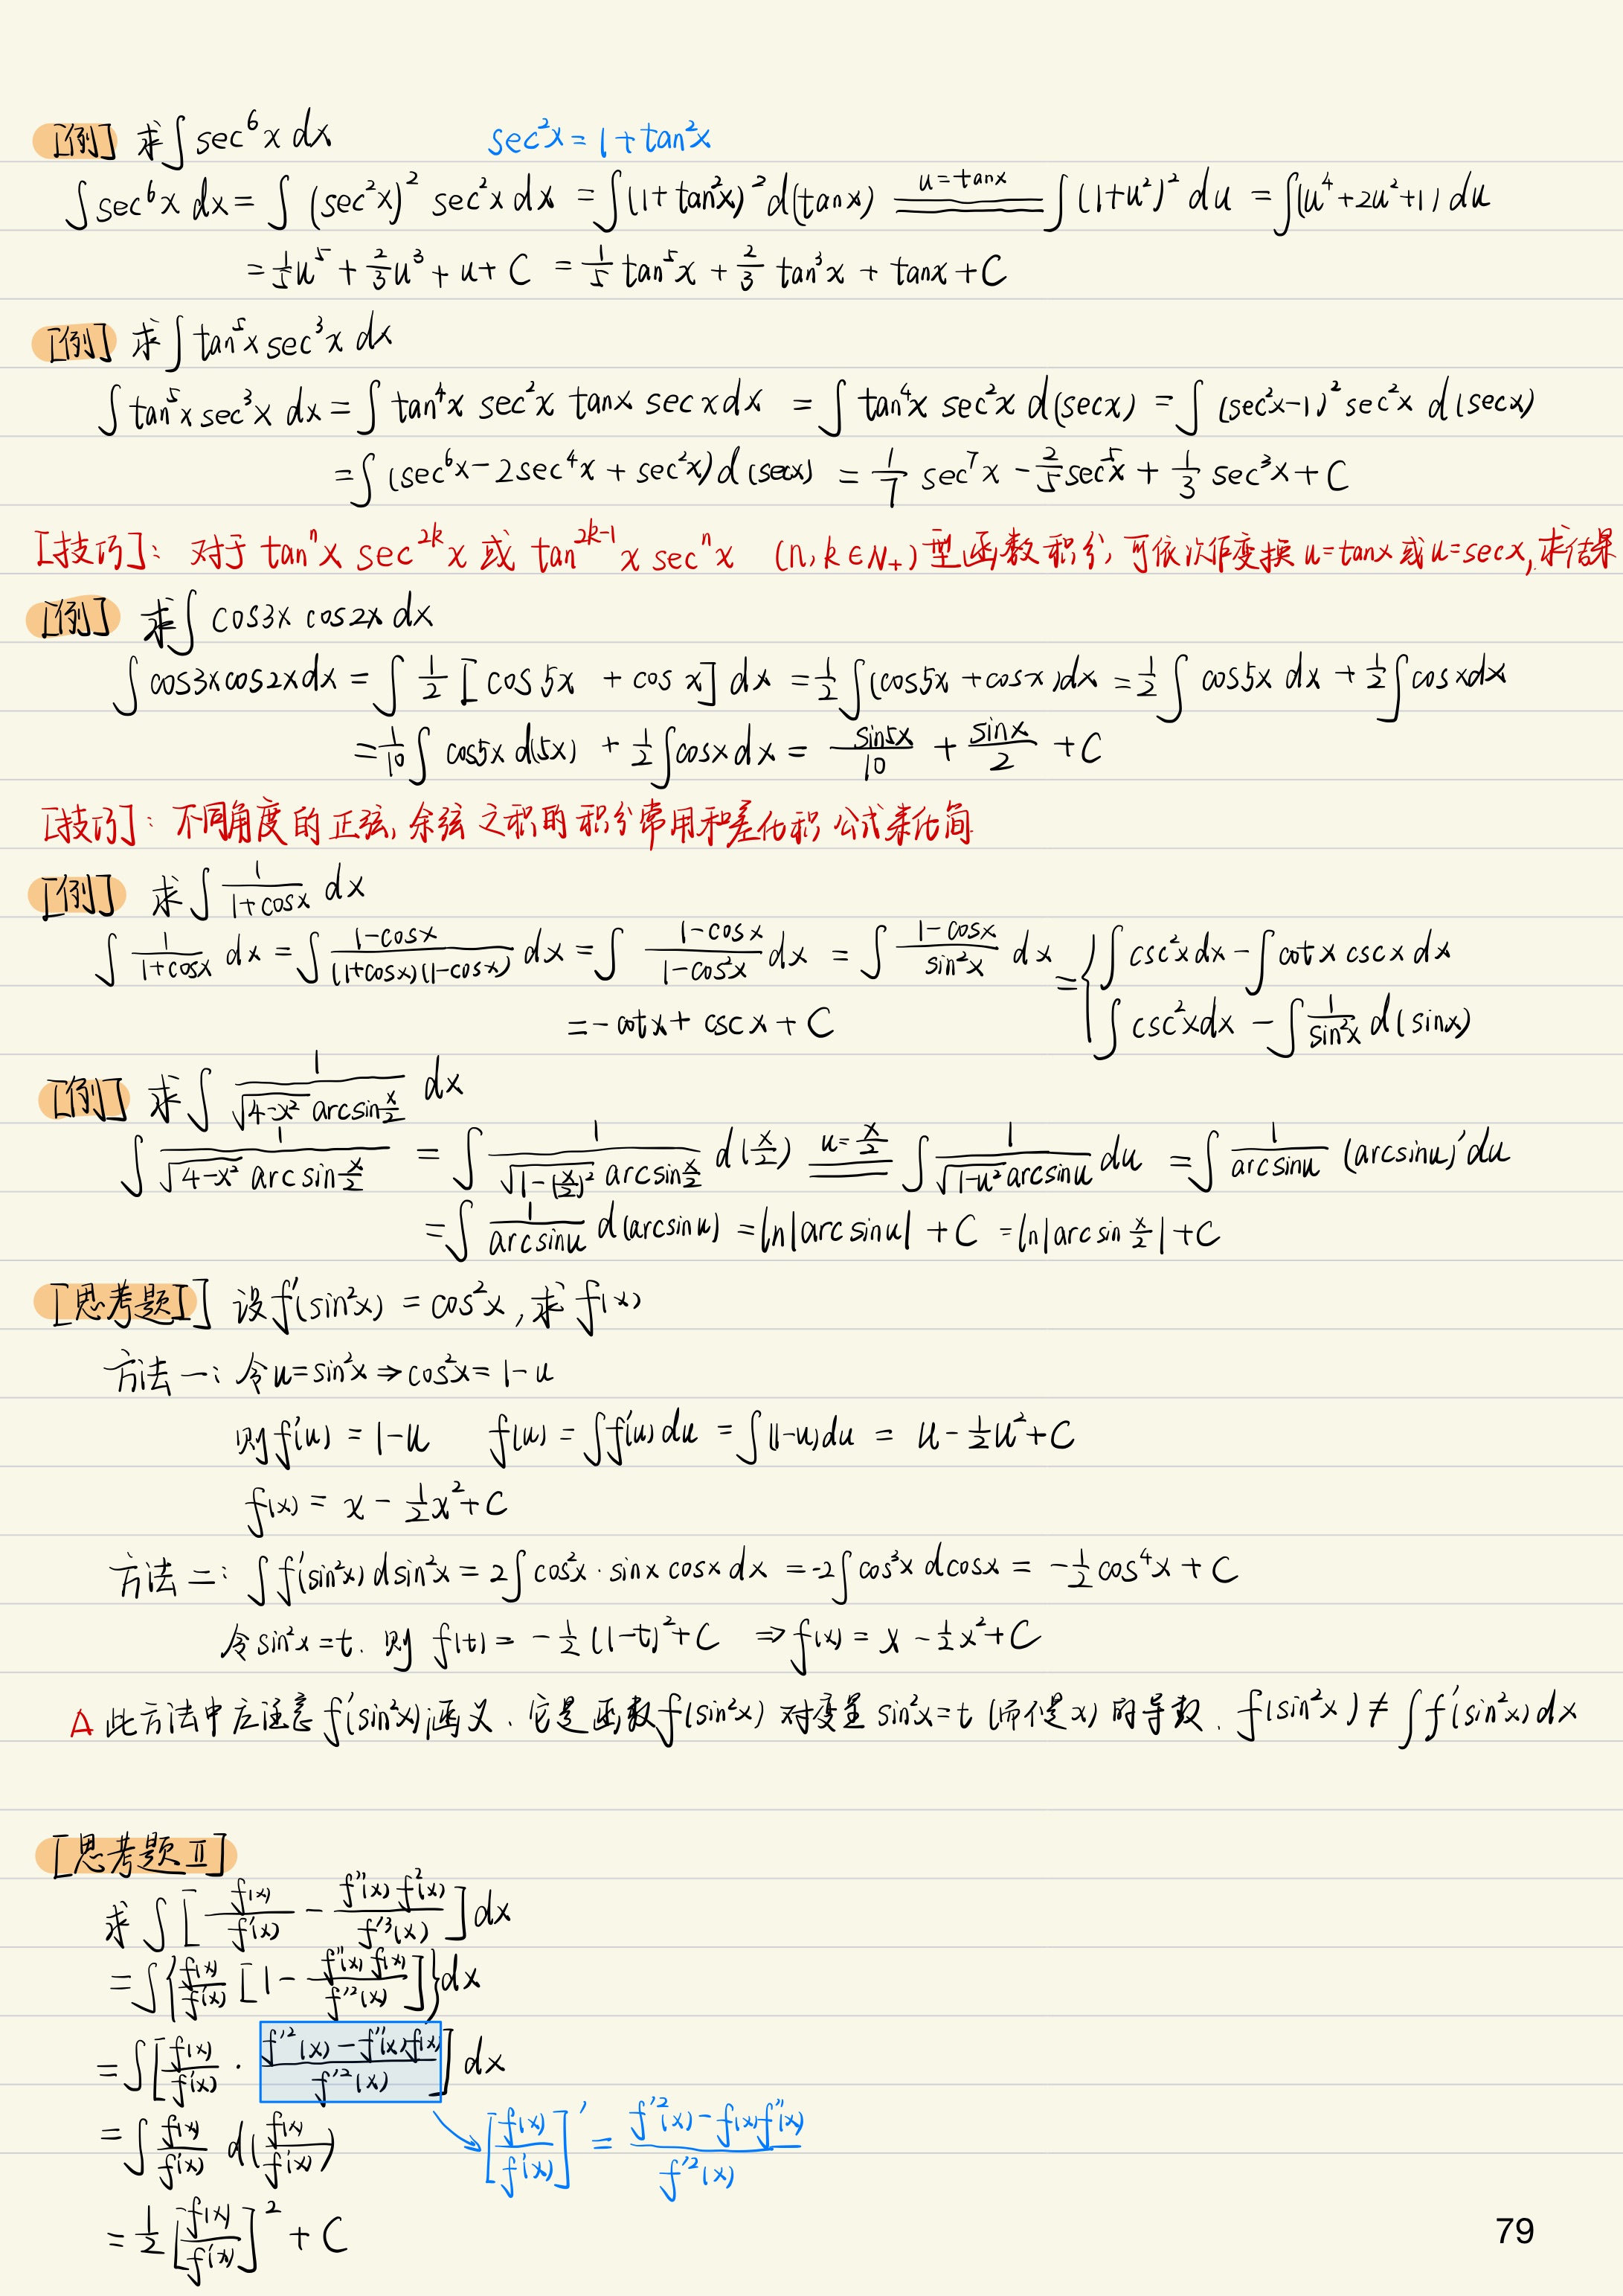 [例] 求∫sec⁶x dx   sec²x = 1+tan²x
∫sec⁶x dx = ∫(sec²x)² sec²x dx = ∫(1+tan²x)² d(tanx) ══(u=tanx)══ ∫(1+u²)² du = ∫(u⁴+2u²+1) du
= 1/5 u⁵ + 2/3 u³ + u + C = 1/5 tan⁵x + 2/3 tan³x + tanx + C
[例] 求∫tan⁵x sec³x dx
∫tan⁵x sec³x dx = ∫tan⁴x sec²x tanx secx dx = ∫tan⁴x sec²x d(secx) = ∫(sec²x-1)² sec²x d(secx)
= ∫(sec⁶x - 2sec⁴x + sec²x) d(secx) = 1/7 sec⁷x - 2/5 sec⁵x + 1/3 sec³x + C
[技巧]: 对于 tanⁿx sec²ᵏx 或 tan²ᵏ⁻¹x secⁿx (n,k∈N₊) 型函数积分, 可依次作变换 u=tanx 或 u=secx, 求结果
[例] 求∫cos3x cos2x dx
∫cos3x cos2x dx = ∫ 1/2 [cos5x + cosx] dx = 1/2 ∫(cos5x + cosx) dx = 1/2 ∫cos5x dx + 1/2 ∫cosx dx
= 1/10 ∫cos5x d(5x) + 1/2 ∫cosx dx = sin5x/10 + sinx/2 + C
[技巧]: 不同角度的正弦, 余弦之积的积分常用和差化积公式来化简
[例] 求∫ 1/(1+cosx) dx
∫ 1/(1+cosx) dx = ∫ (1-cosx)/((1+cosx)(1-cosx)) dx = ∫ (1-cosx)/(1-cos²x) dx = ∫ (1-cosx)/sin²x dx = { ∫csc²x dx - ∫cotx cscx dx
∫csc²x dx - ∫ 1/sin²x d(sinx)
= -cotx + cscx + C
[例] 求∫ 1/(√(4-x²) arcsin x/2) dx
∫ 1/(√(4-x²) arcsin x/2) = ∫ 1/(√(1-(x/2)²) arcsin x/2) d(x/2) ══(u=x/2)══ ∫ 1/(√(1-u²) arcsinu) du = ∫ 1/arcsinu (arcsinu)' du
= ∫ 1/arcsinu d(arcsinu) = ln|arcsinu| + C = ln|arcsin x/2| + C
[思考题I] 设f'(sin²x) = cos²x, 求f(x)
方法一: 令u=sin²x ⇒ cos²x = 1-u
则f'(u) = 1-u   f(u) = ∫f'(u) du = ∫(1-u) du = u - 1/2 u² + C
f(x) = x - 1/2 x² + C
方法二: ∫f'(sin²x) dsin²x = 2∫cos²x · sinx cosx dx = -2∫cos³x dcosx = -1/2 cos⁴x + C
令sin²x = t. 则 f(t) = -1/2 (1-t)² + C ⇒ f(x) = x - 1/2 x² + C
A 此方法中应注意f'(sin²x)涵义. 它是函数f(sin²x) 对变量sin²x=t (而不是x) 的导数. f(sin²x) ≠ ∫f'(sin²x) dx
[思考题 II]
求∫[ f(x)/f'(x) - f''(x)f²(x)/f'³(x) ] dx
= ∫{ f(x)/f'(x) [1 - f''(x)f(x)/f'²(x)] } dx
= ∫[ f(x)/f'(x) · (f'²(x) - f''(x)f(x))/f'²(x) ] dx
= ∫ f(x)/f'(x) d(f(x)/f'(x))   [f(x)/f'(x)]' = (f'²(x) - f(x)f''(x))/f'²(x)
= 1/2 [f(x)/f'(x)]² + C
79